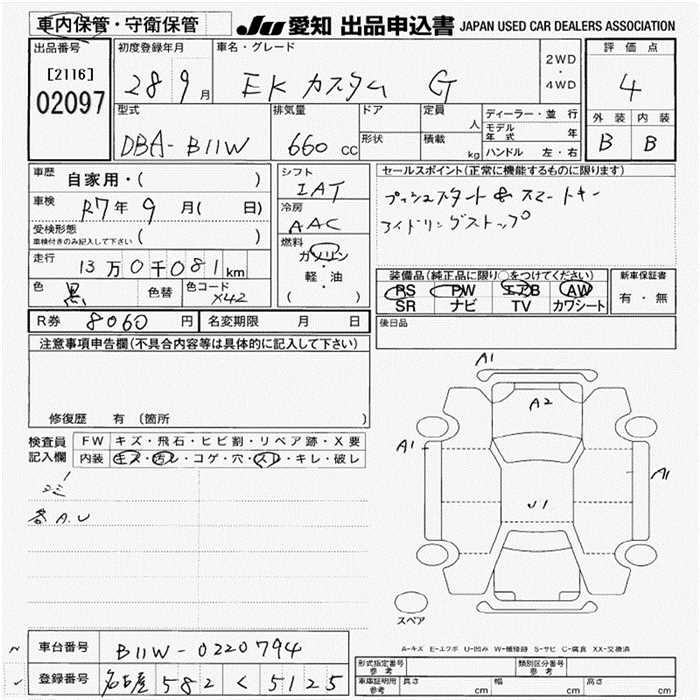 車内保管・守衛保管
JU 愛知 出品申込書 JAPAN USED CAR DEALERS ASSOCIATION
出品番号
[2116]
02097
初度登録年月
28 9月
車名・グレード
EK カスタム G
2WD
・
4WD
評価点
4
外装 内装
B B
型式
DBA-B11W
排気量
660 cc
ドア
形状
定員
人
積載
kg
ディーラー・並行
モデル年式 年
ハンドル 左・右
車歴
自家用・( )
車検
R7年9月( 日)
受検形態
車検付きのみ記入して下さい ( )
走行
13万0千081km
色
黒
色替
色コード
X42
シフト
IAT
冷房
AAC
燃料
ガソリン
・
軽・油
( )
セールスポイント(正常に機能するものに限ります)
プッシュスタート& スマートキー
アイドリングストップ
装備品(純正品に限り○をつけてください)
PS PW エアB AW
SR ナビ TV カワシート
新車保証書
有・無
R券 8060円
名変期限 月 日
後日品
注意事項申告欄(不具合内容等は具体的に記入して下さい)
修復歴 有(箇所 )
検査員記入欄
FW キズ・飛石・ヒビ割・リペア跡・X要
内装 キズ・汚レ・コゲ・穴・スレ・キレ・破レ
各A.U
A1
A2
A1
A1
J1
スペア
A-キズ E-エクボ U-凹み W-補修跡 S-サビ C-腐食 XX-交換済
車台番号
B11W-0220794
登録番号
名古屋 582 く 5125
形式指定番号
参考
類別区分番号
参考
車庫証明用
参考
長さ cm
幅 cm
高さ cm